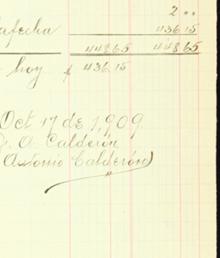 2 ..
lafecha 436.15
448.65 448.65
hoy $ 436.15
Oct 17 de 1,909.
A. Calderón
Antonio Calderón